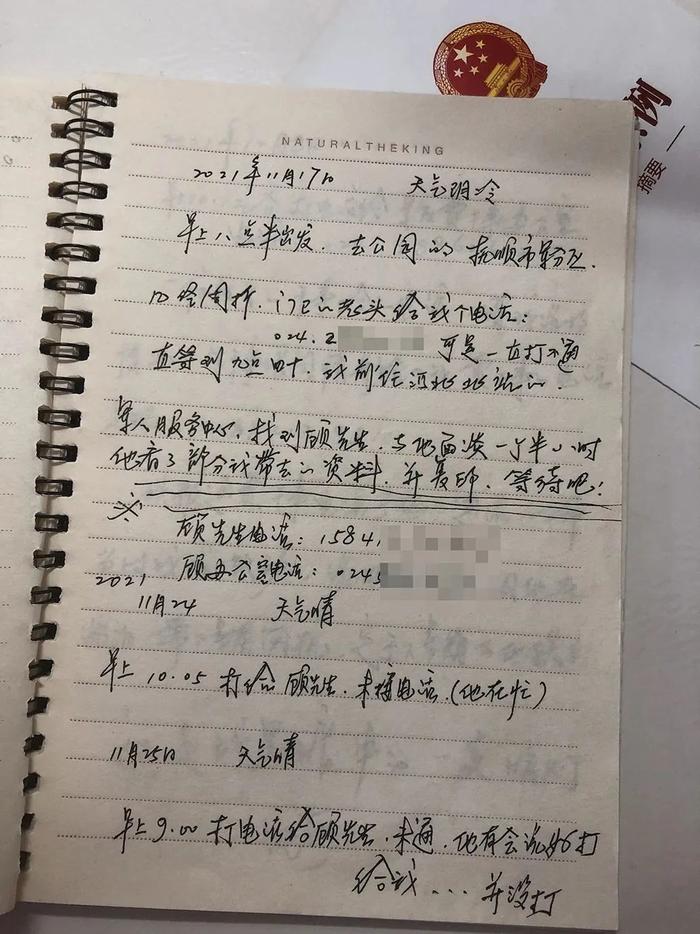 例
摘要
NATURALTHEKING
2021年11月17日 天气阴冷
早上八点半出发，去公园的抚顺市军分区.
几经周折，门卫的老头给我个电话：
024.2 可是一直打不通
直等到九点四十，我前往河北北站的
军人服务中心，找到顾先生，与他面谈一个半小时
他看了部分我带去的资料，并复印，等待吧！
顾先生电话：15841
顾办公室电话：0245
2021
11月24 天气晴
早上10.05 打给顾先生，未接电话（他在忙）
11月25日 天气晴
早上9.00 打电话给顾先生，未通，他有会说好打
给我... 并没打